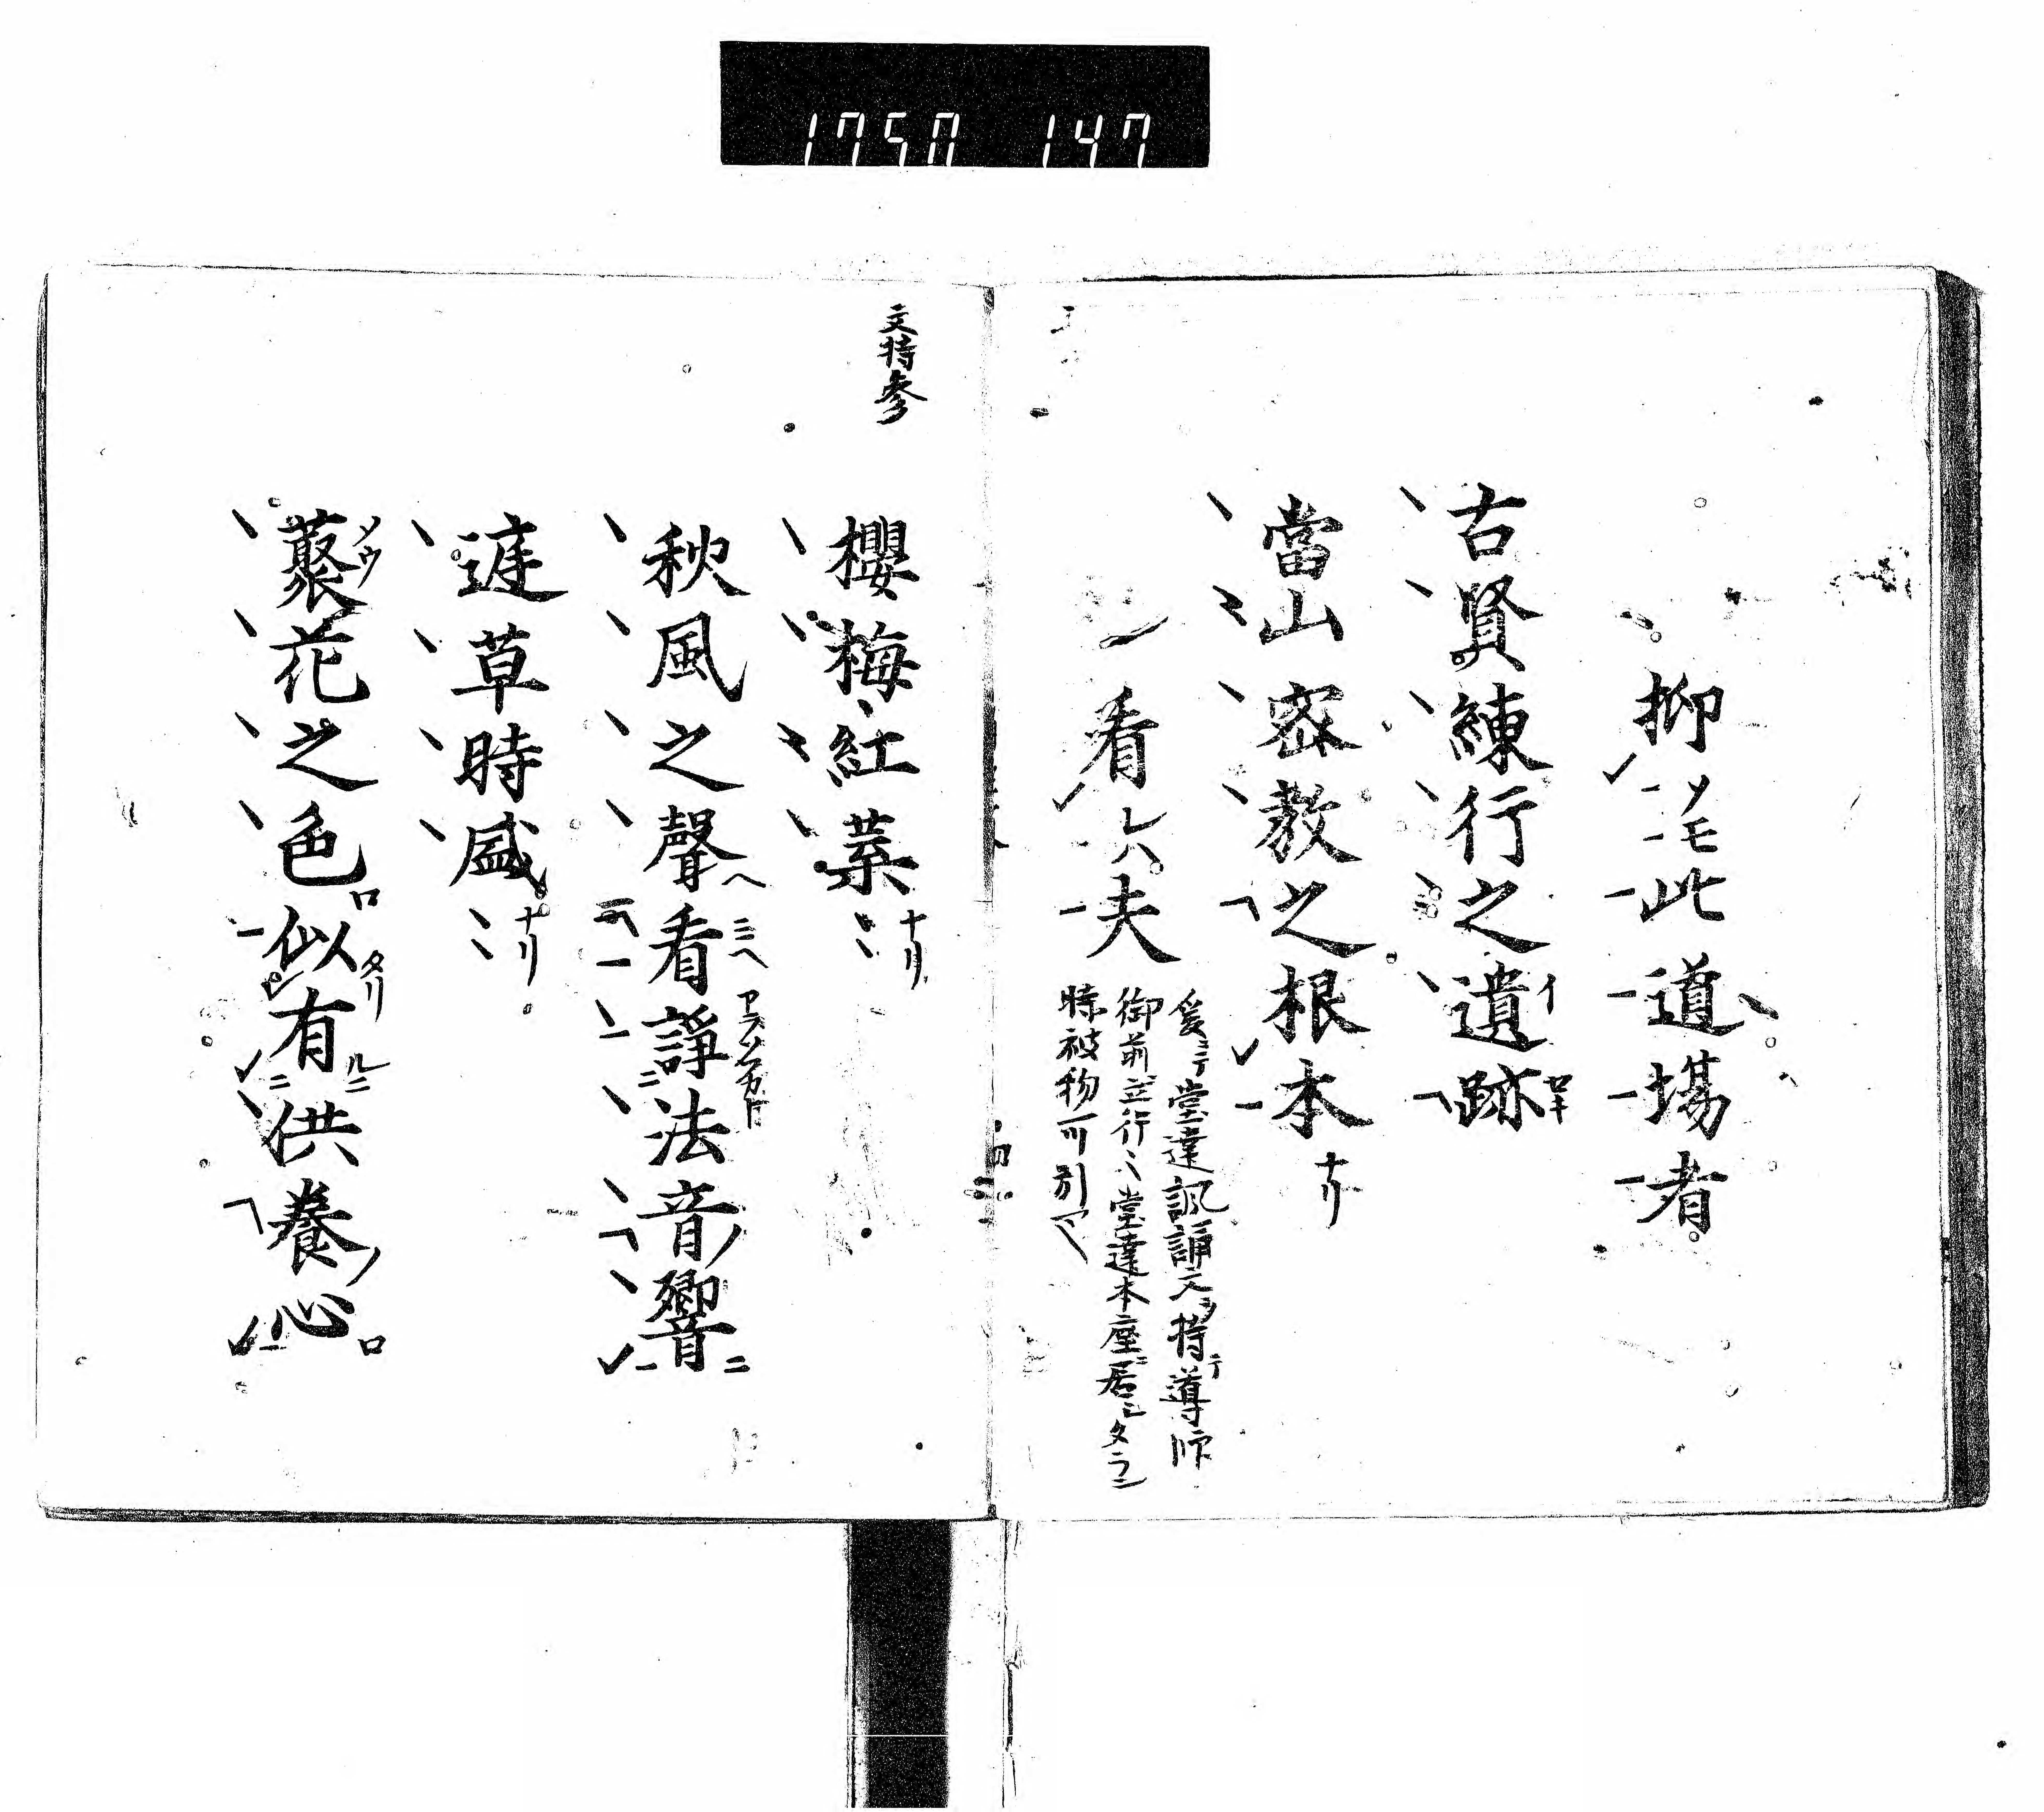 1750 147
抑ソモ此道場者
古賢練行之遺イ跡
當山密教之根本ナリ
看レハ夫
爰ニテ堂達諷誦文ヲ持テ導師
御前立行〻堂達本座ニ居シタラン
時被物可引
文持参
櫻梅紅葉ナリ
秋風之聲ヘ看諍法音響ニ
遅草時盛ナリ
藂ソウ花之色似タリ有ルニ供養心